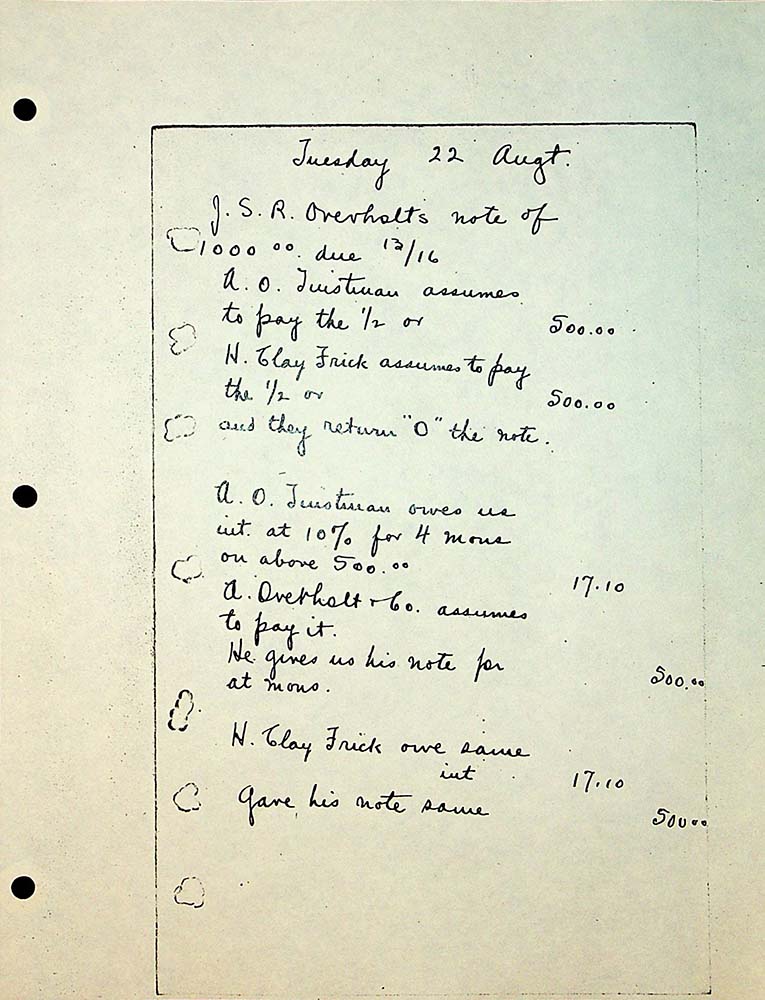 Tuesday 22 Augt.
J. S. R. Overholts note of
1000 00. due 13/16
A. O. Tinstman assumes
to pay the 1/2 or 500.00
H. Clay Frick assumes to pay
the 1/2 or 500.00
and they return "O" the note.
A. O. Tinstman owes us
int. at 10% for 4 mons
on above 500.00
17.10
A. Overholt + Co. assumes
to pay it.
He gives us his note for
at mons. 500.00
H. Clay Frick owe same
int 17.10
Gave his note same
500 00